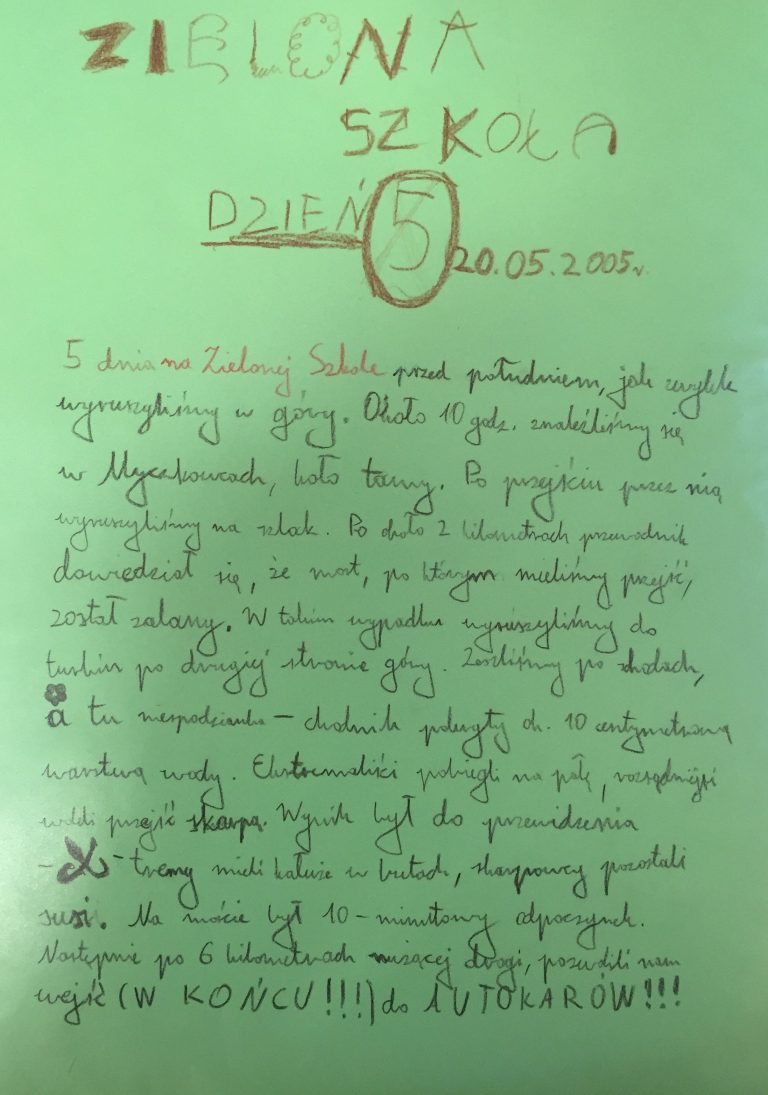 ZIELONA
SZKOŁA
DZIEŃ 5 20.05.2005r.
5 dnia na Zielonej Szkole przed południem, jak zwykle
wyruszyliśmy w góry. Około 10 godz. znaleźliśmy się
w Myczkowcach, koło tamy. Po przejściu przez nią
wyruszyliśmy na szlak. Po około 2 kilometrach przewodnik
dowiedział się, że most, po którym mieliśmy przejść,
został zalany. W takim wypadku wyruszyliśmy do
turbin po drugiej stronie góry. Zeszliśmy po schodach,
a tu niespodzianka – chodnik pokryty ok. 10 centymetrową
warstwą wody. Ekstremaliści pobiegli na pałę, rozsądniejsi
woleli przejść skarpą. Wynik był do przewidzenia
- X-tremy mieli kałuże w butach, skarpowcy pozostali
susi. Na moście był 10-minutowy odpoczynek.
Następnie po 6 kilometrach nużącej drogi, pozwolili nam
wejść (W KOŃCU!!!) do AUTOKARÓW!!!